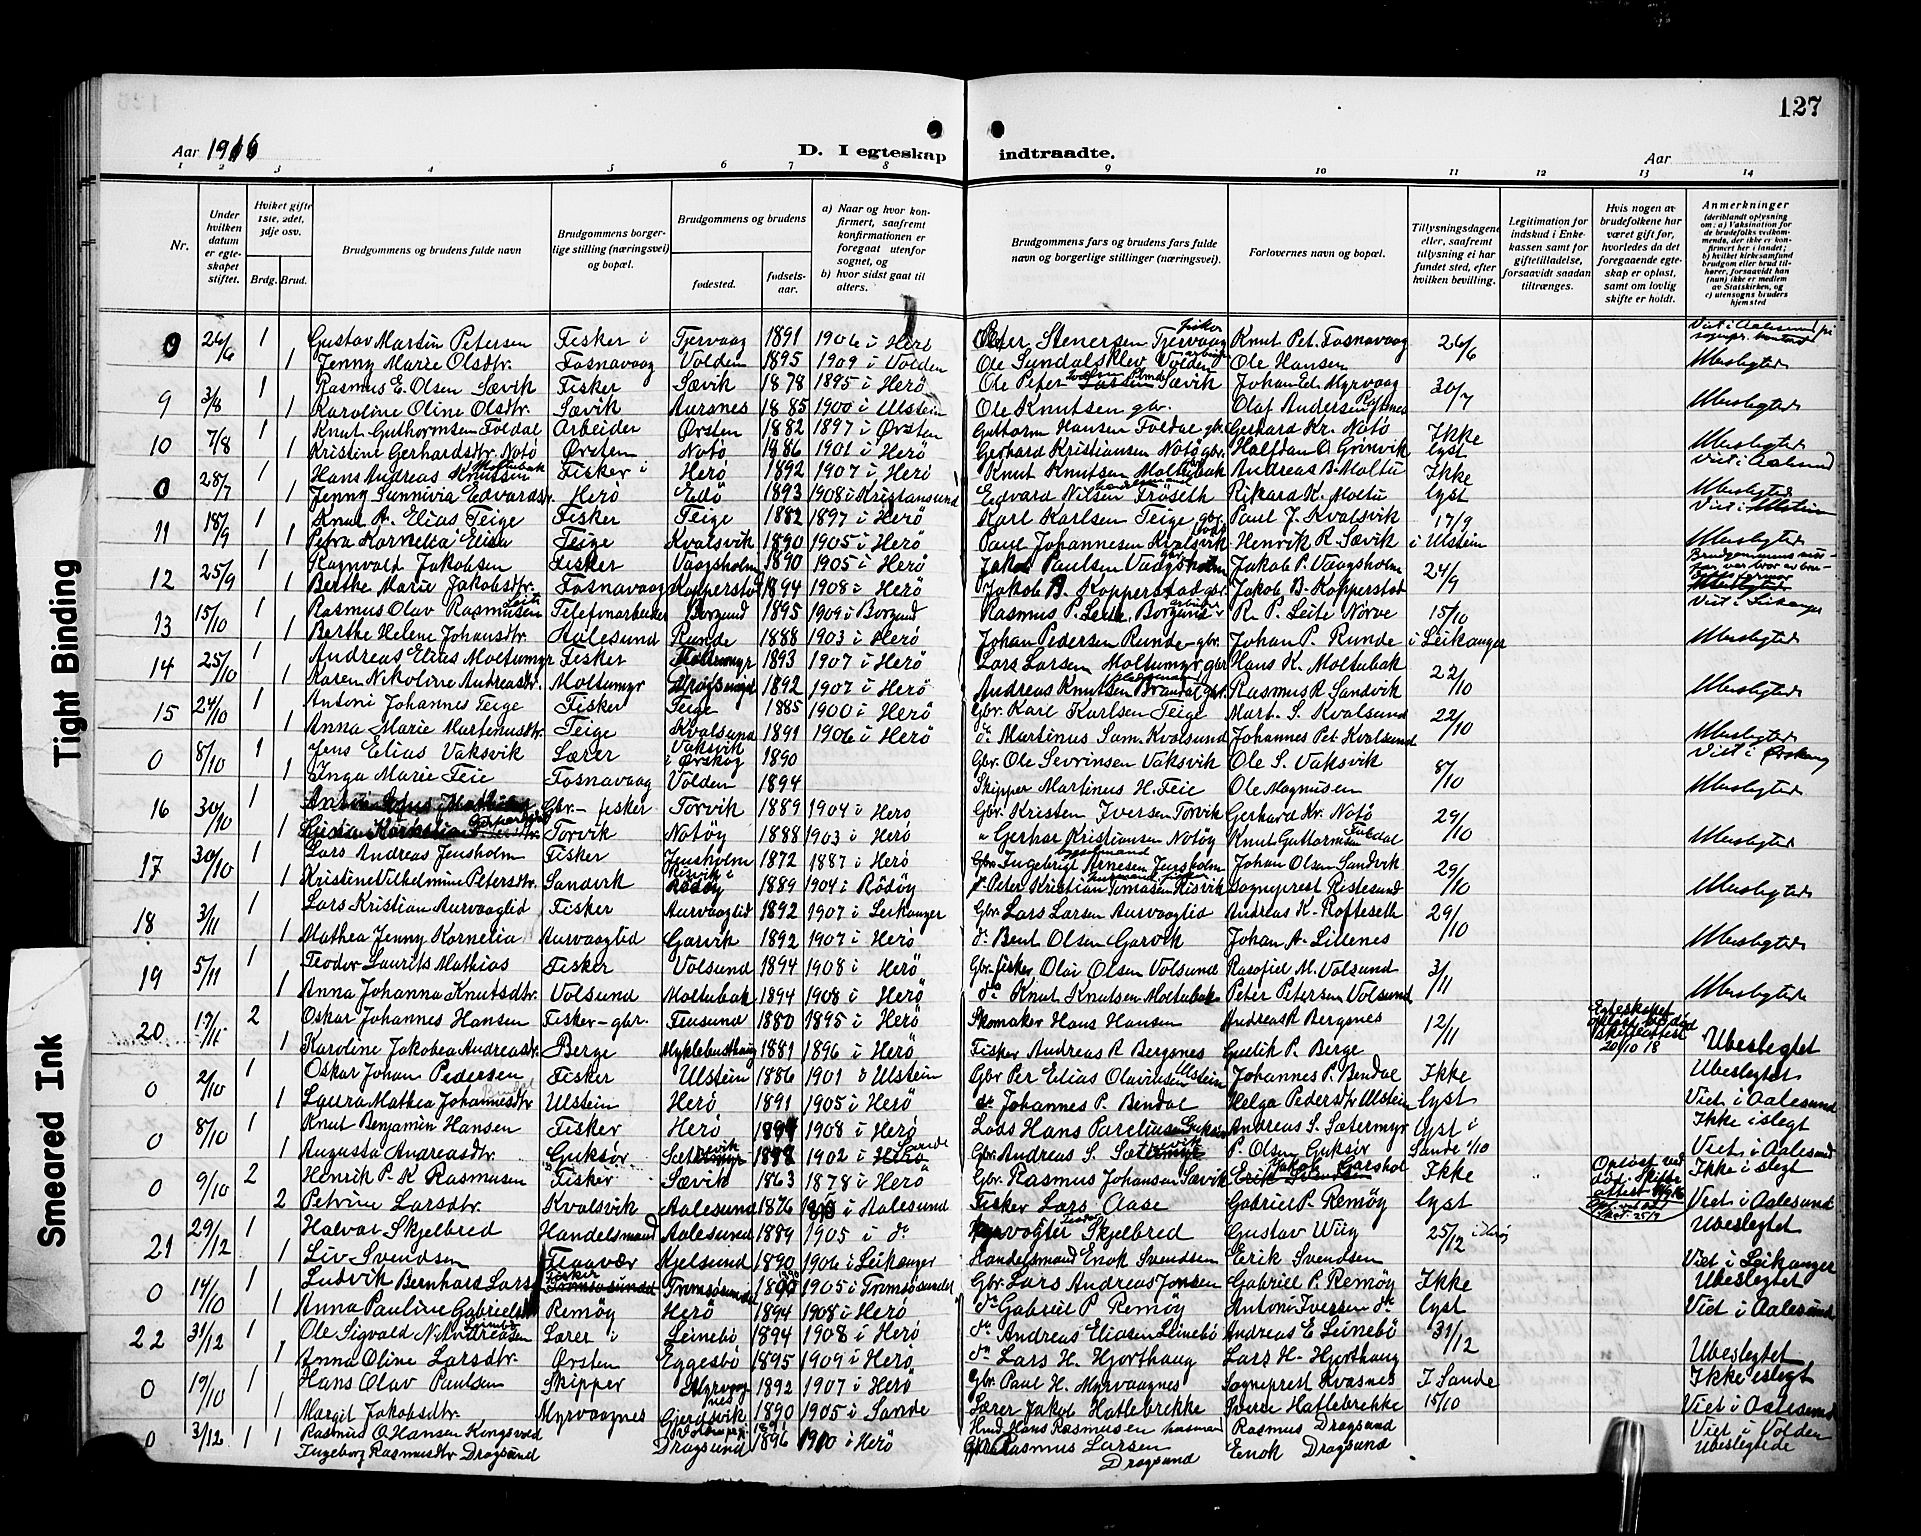 127
Aar 1916
D. I egteskap indtraadte.
Aar
1 2 3 4 5 6 7 8 9 10 11 12 13 14
Nr.
Under hvilken datum er egteskapet stiftet.
Hviket gifte 1ste, 2det, 3dje osv.
Brdg. Brud.
Brudgommens og brudens fulde navn
Brudgommens borgerlige stilling (næringsvei) og bopæl.
Brudgommens og brudens
fødested.
fødselsaar.
a) Naar og hvor konfirmert, saafremt konfirmationen er foregaat utenfor sognet, og
b) hvor sidst gaat til alters.
Brudgommens fars og brudens fars fulde navn og borgerlige stillinger (næringsvei).
Forlovernes navn og bopæl.
Tillysningsdagene eller, saafremt tillysning ei har fundet sted, efter hvilken bevilling.
Legitimation for indskud i Enkekassen samt for giftetilladelse, forsaavidt saadan tiltrænges.
Hvis nogen av brudefolkene har været gift før, hvorledes da det foregaaende egteskap er opløst, samt om lovlig skifte er holdt.
Anmerkninger
(deriblandt oplysning om: a) Vaksination for de brudefolks vedkommende, der ikke er konfirmert her i landet; b) hvilket kirkesamfund brudgom eller brud tilhører, forsaavidt han (hun) ikke er medlem av Statskirken, og c) utensogns bruders hjemsted
0 26/6 1 Gustav Martin Petersen Fisker i Tjervaag 1891 1906 i Herö Peter Stenersen Tjervaag fisker Knut Pet. Fosnavaag 26/6 Viet i Aalesund
1 Jenny Marie Olsdtr. Fosnavaag Volden 1895 1909 i Volden Ole Sundalsklev Volden arbeider Ole Hansen Ubeslegtede
9 3/8 1 Rasmus E. Olsen Sævik Fisker Sævik 1878 1895 i Herö Ole Peter Sævik Johan Ed. Myrvaag 30/7
1 Karoline Oline Olsdtr. Sævik Aursnes 1885 1900 i Ulstein Ole Knutsen gbr. Olaf Andersen Ubeslegtede
10 7/8 1 Knut Guthormsen Foldal Arbeider Ørsten 1882 1897 i Ørsten Guttorm Hansen Foldal gbr. Gerhard Kr. Notö Ikke
1 Kristine Gerhardsdtr. Notö Ørsten Notö 1886 1901 i Herö Gerhard Kristiansen Notö gbr. Halfdan O. Grimvik lyst Ubeslegtede
0 28/7 1 Hans Andreas Knutsen Moltubak Fisker i Herö 1892 1907 i Herö Knut Knutsen Moltubak Andreas B. Moltu Ikke Viet i Aalesund
1 Jenny Sunnivia Edvardsdtr. Herö Edö 1893 1908 i Kristansund Edvard Nilsen Fröseth Rikard K. Moltu lyst Ubeslegtede
11 18/9 1 Knut A. Elias Teige Fisker Teige 1882 1897 i Herö Karl Karlsen Teige gbr. Paul J. Kvalsvik 17/9 Viet i Ulstein
1 Petra Kornelia Elisa Teige Kvalsvik 1890 1905 i Herö Paul Johannesen Kvalsvik Henrik R. Sævik i Ulstein Ubeslegtede
12 25/9 1 Ragnvald Jakobsen Fisker Vaagsholm 1890 1905 i Herö Jakob Paulsen Vaagsholm Jakob P. Vaagsholm 24/9
1 Berthe Marie Jakobsdtr. Fosnavaag Kopperstad 1894 1908 i Herö Jakob B. Kopperstad gbr. Jakob B. Kopperstad
13 15/10 1 Rasmus Olav Rasmussen Leite Telefonarbeider Borgund 1895 1909 i Borgund Rasmus P. Leite, Borgund arbeider R. P. Leite Nörve 15/10 Viet i Leikanger
1 Berthe Helene Johansdtr. Aalesund Runde 1888 1903 i Herö Johan Pedersen Runde gbr. Johan P. Runde i Leikanger Ubeslegtede
14 25/10 1 Andreas Elias Moltumyr Fisker Moltumyr 1893 1907 i Herö Lars Larsen Moltumyr gbr Hans K. Moltubak 22/10
1 Karen Nikoline Andreasdtr. Moltumyr 1892 1907 i Herö Andreas Knutsen Brandal gbr. Rasmus R Sandvik Ubeslegtede
15 24/10 1 Antoni Johannes Teige Fisker Teige 1885 1900 i Herö Gbr. Karl Karlsen Teige Mart. S. Kvalsund 22/10
1 Anna Marie Martinusdtr. Teige Kvalsund 1891 1906 i Herö do Martinus Sam. Kvalsund Johannes Pet. Kvalsund Ubeslegtede
0 8/10 1 Jens Elias Vaksvik Lærer Vaksvik i Ørskog 1890 Gbr. Ole Sevrinsen Vaksvik Ole S. Vaksvik 8/10 Viet i Ørskog
1 Inga Marie Feie Fosnavaag Volden 1894 Skipper Martinus H. Feie Ole Magnusen Ubeslegtede
16 30/10 1 Gbr. – fisker Torvik 1889 1904 i Herö Gbr. Kristen Iversen Torvik Gerhard Kr. Notö 29/10
1 Torvik Notöy 1888 1903 i Herö " Gerhar Kristiansen Notöy Knut Guttormsen Foldal Ubeslegtede
17 30/10 1 Lars Andreas Jensholm Fisker Jensholm 1872 1887 i Herö Gbr. Ingebrigt Arnesen Jensholm Johan Olsen Sandvik 29/10
1 Kristine Vilhelmine Petersdtr. Sandvik Risvik i Rödöy 1889 1904 i Rödöy Peter Kristian Tomasen Risvik Sogneprest Restesund Ubeslegtede
18 3/11 1 Lars Kristian Aurvaaglid Fisker Aurvaaglid 1892 1907 i Leikanger Gbr. Lars Larsen Aurvaaglid Andreas K. Rofteseth 29/10
1 Mathea Jenny Kornelia Aurvaaglid Garvik 1892 1907 i Herö do Bent Olsen Garvik Johan A. Lillenes Ubeslegtede
19 5/11 1 Teodor Laurits Mathias Fisker Volsund 1894 1908 i Herö Gbr. fisker Olai Olsen Volsund Rasofiel M. Volsund 3/11
1 Anna Johanna Knutsdtr. Volsund Moltubak 1894 1908 i Herö do Knut Knutsen Moltubak Peter Petersen Volsund Ubeslegtede
20 17/11 2 Oskar Johannes Hansen Fisker – gbr. Flusund 1880 1895 i Herö Skomaker Hans Hansen Andreas R Bergsnes 12/11 Egteskapet opløst ved död Skifteattest 20/10 18
1 Karoline Jakobea Andreasdtr. Berge Myklebusthaug 1881 1896 i Herö Fisker Andreas R Bergsnes Gullik P. Berge Ubeslegtet
0 2/10 1 Oskar Johan Pedersen Fisker Ulstein 1886 1901 i Ulstein Gbr Per Elias Olavinsen Ulstein Johannes P. Bendal Ikke Ubeslegtet
1 Laura Mathea Johannesdtr Ulstein Herö 1891 1905 i Herö do Johannes P. Bendal Helga Pedersdtr Ulstein lyst Viet i Aalesund
0 8/10 1 Knut Benjamin Hansen Fisker Herö 1894 1908 i Herö Lods Hans Parelius Guksör Andreas S. Sætermyr lyst i Ikke i slegt
1 Augusta Andreasdtr. Guksör 1888 1902 i Sande Gbr. Andreas S. P. Olsen Guksör Sande 1/10 Viet i Aalesund
0 9/10 2 Henrik P. K Rasmussen Fisker Sævik 1863 1878 i Herö Gbr. Rasmus Johansen Sævik Jakob Garshol Ikke Opløst ved död. Skifteattest Ikke i slegt
2 Petrine Larsdtr. Kvalsvik Aalesund 1876 i Aalesund Fisker Lars Aase Gabriel P. Remöy lyst Viet i Aalesund
21 29/12 1 Halvar Skjelbred Handelsmand Aalesund 1889 1905 i do Fyrvogter Skjelbred Gustav Wiig 25/12 i Heröy Ubeslegtet
1 Liv Svendsen Flaavær Kjelsund 1890 1906 i Leikanger Handelsmand Enok Svendsen Erik Svendsen Viet i Leikanger
0 14/10 1 Ludvik Bernhard Larsen Fisker Tromsösundet 1890 1905 i Tromsösundet Gbr. Lars Andreas Jonsen Gabriel P. Remöy Ikke Ubeslegtet
1 Anna Pauline Gabrielsdtr Remöy Herö 1894 1908 i Herö do Gabriel P. Remöy Antoni Iversen do lyst Viet i Aalesund
22 31/12 1 Ole Sigvald N. Andreasen Leinebö Lærer i Leinebö 1894 1908 i Herö do Andreas Eliasen Leinebö Andreas E Leinebö 31/12
1 Anna Oline Larsdtr. Ørsten Eggesbö 1895 1909 i Herö do Lars H. Hjorthaug Lars H. Hjorthaug Ubeslegtet
0 19/10 1 Hans Olav Paulsen Skipper Myrvaagnes 1892 1907 i Herö Gbr. Paul H. Myrvaagnes Sogneprest Kvasnes I Sande Ikke i slegt
1 Margit Jakobsdtr. Myrvaagnes Gjerdsvik 1890 1905 i Sande Lærer Jakob Hatlebrekke Sverre Hatlebrekke 15/10 Viet i Aalesund
0 3/12 1 1 Rasmus O Hansen Kingsvold Hans Rasmussen husmand Rasmus Dragsund Viet i Volden
Ingeborg Rasmusdtr Dragsund Dragsund 1896 1910 i Herö Rasmus Larsen Dragsund Enok Dragsund Ubeslegtede
Tight Binding
Smeared Ink